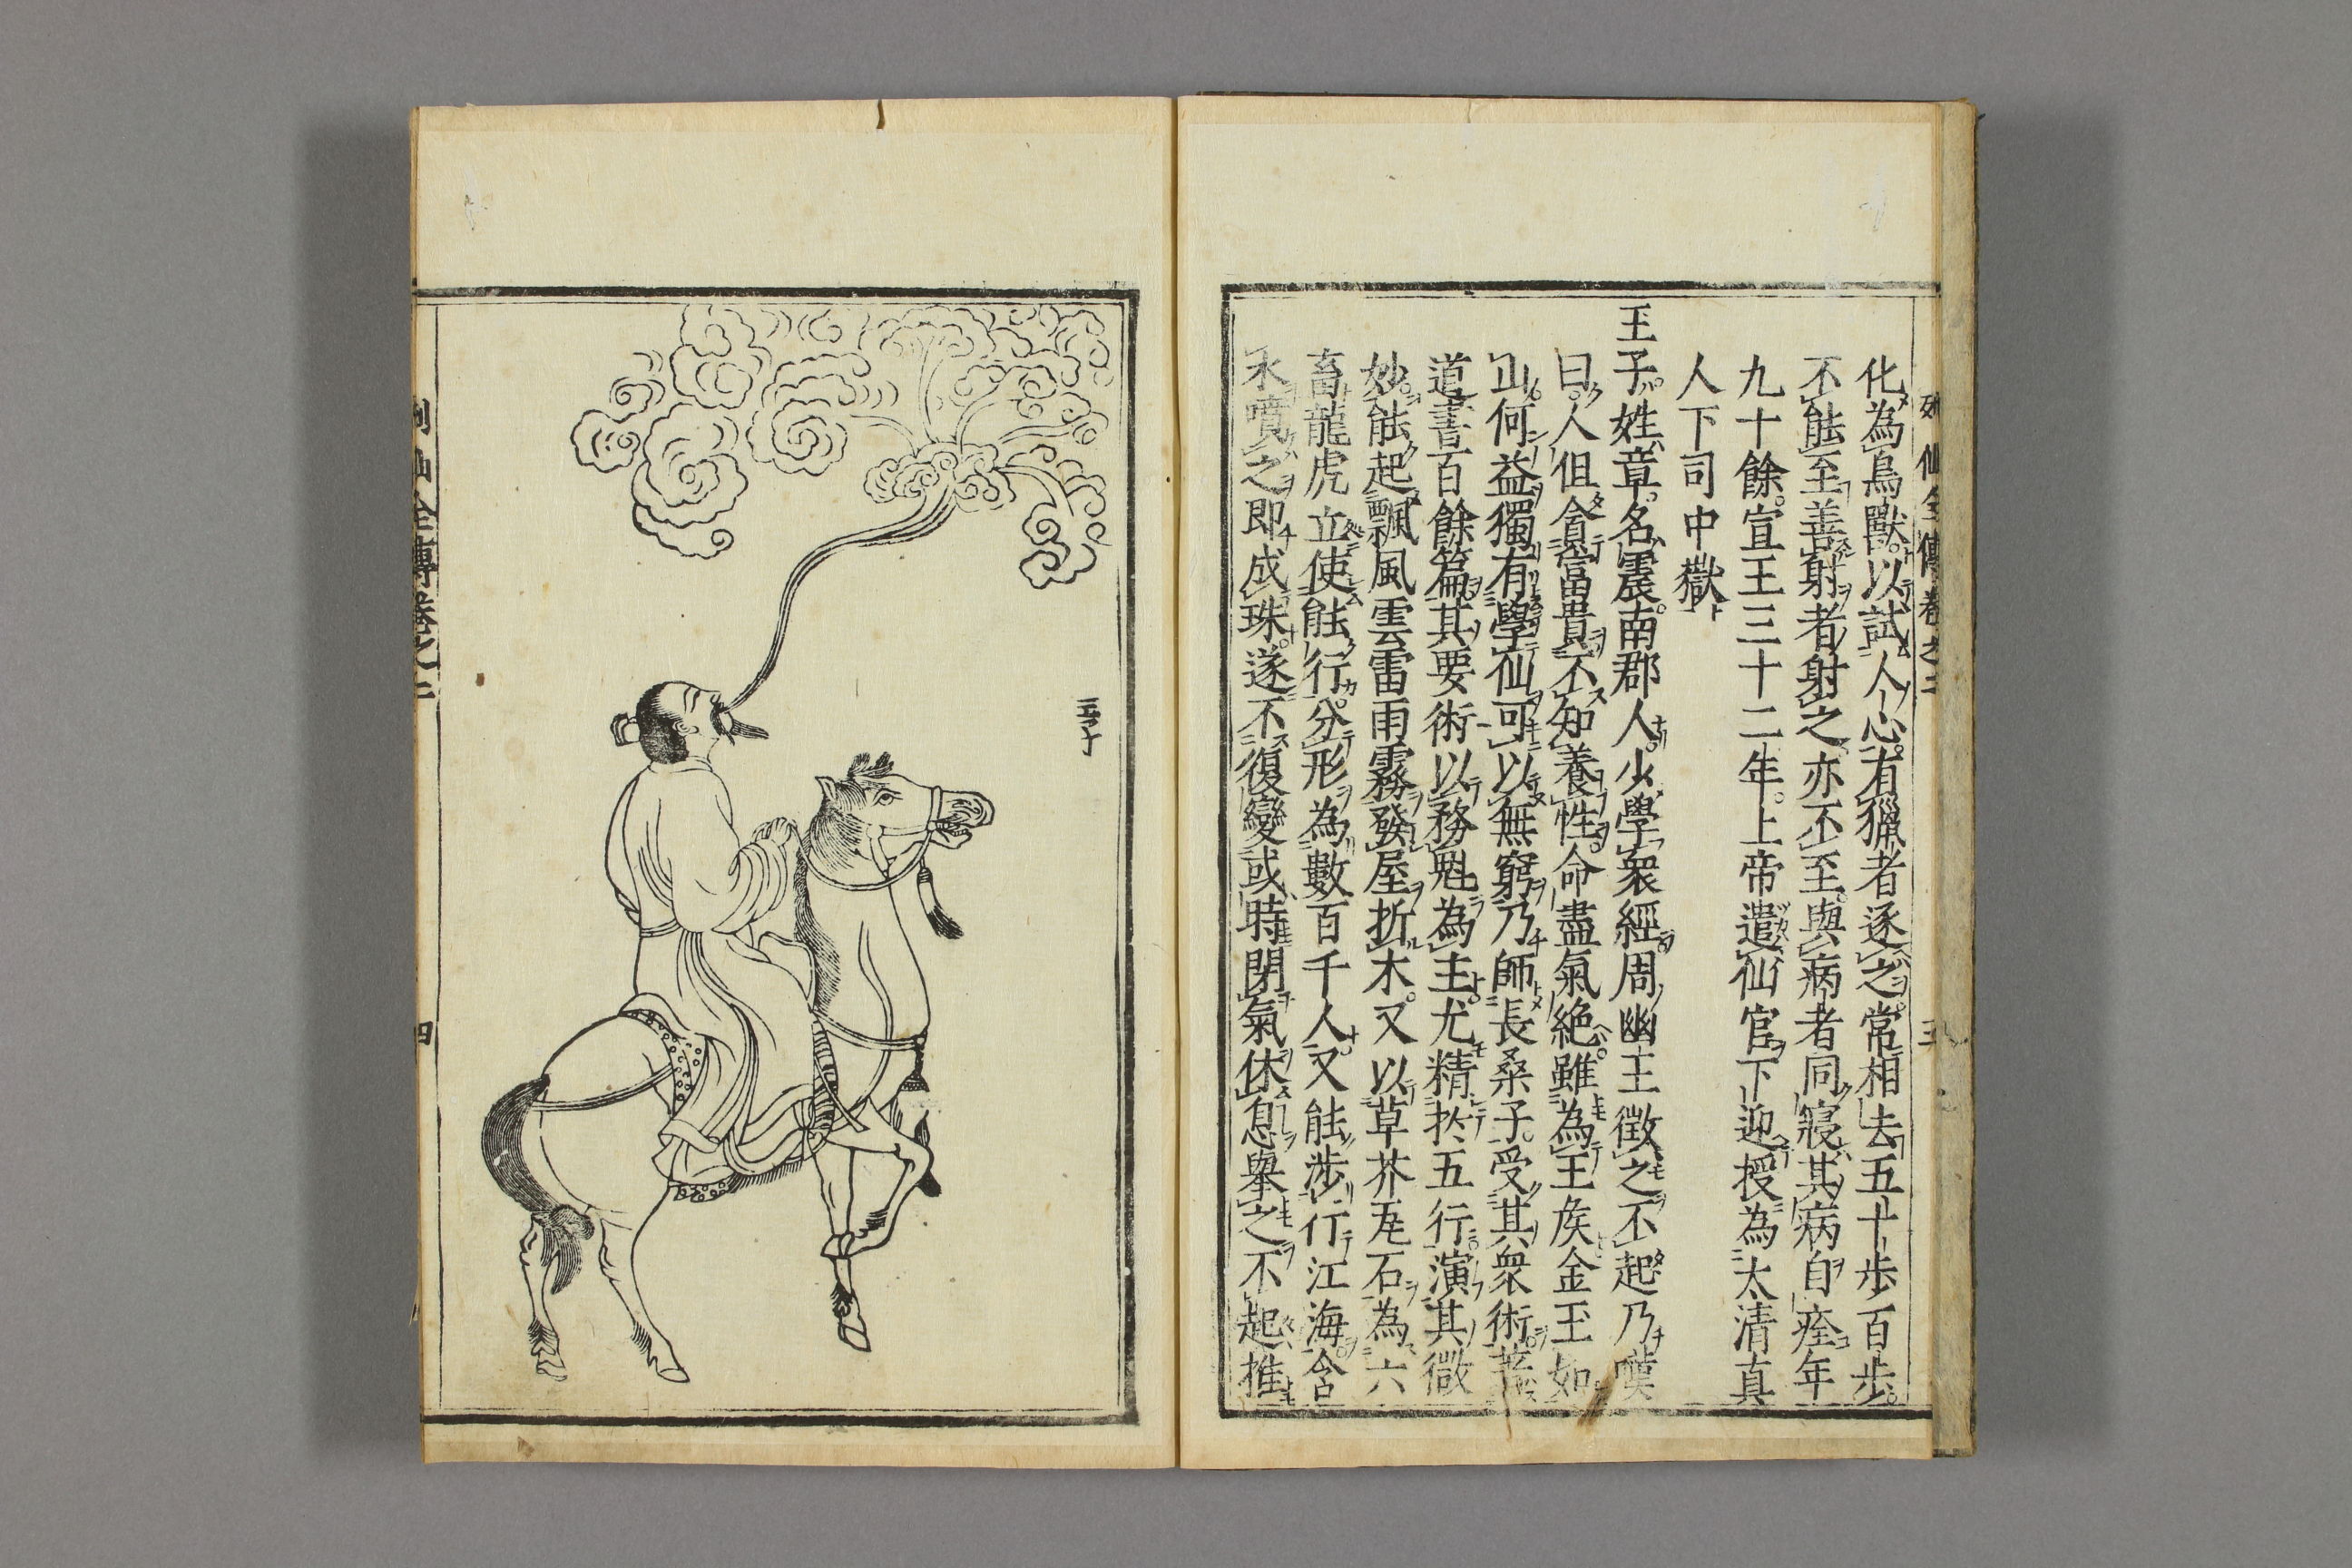 列仙全傳卷之二 三
化為鳥獸以試人心有獵者逐之常相去五十步百步
不能至善射者射之亦不至與病者同寢其病自痊年
九十餘宣王三十二年上帝遣仙官下迎授為太清真
人下司中嶽
玉子姓章名震南郡人少學衆經周幽王徵之不起乃嘆
曰人但貪富貴不知養性命盡氣絶雖為王侯金玉如
山何益獨有學仙可以無窮乃師長桑子受其衆術
道書百餘篇其要術以務魁為主尤精於五行演其微
妙能起飄風雲雷雨霧發屋折木又以草芥瓦石為六
畜龍虎立使能行分形為數百千人又能涉行江海含
水噴之即成珠遂不復變或時閉氣休息舉之不起推
玉子
列仙全傳卷之二 四